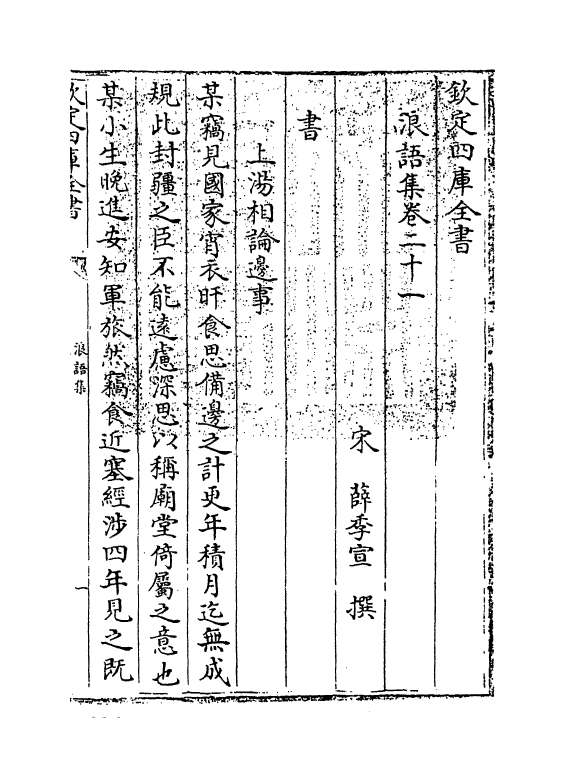 欽定四庫全書
浪語集卷二十一
宋 薛季宣 撰
書
上湯相論邊事
某竊見國家宵衣旰食思備邊之計更年積月迄無成
規此封疆之臣不能遠慮深思以稱廟堂倚屬之意也
某小生晚進安知軍旅然竊食近塞經涉四年見之既
欽定四庫全書
浪語集
一